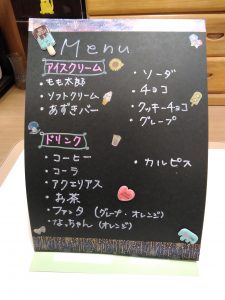 Menu
アイスクリーム
・もも太郎
・ソフトクリーム
・あずきバー
・ソーダ
・チョコ
・クッキーチョコ
・グレープ
ドリンク
・コーヒー
・コーラ
・アクエリアス
・お茶
・ファンタ (グレープ・オレンジ)
・なっちゃん (オレンジ)
・カルピス